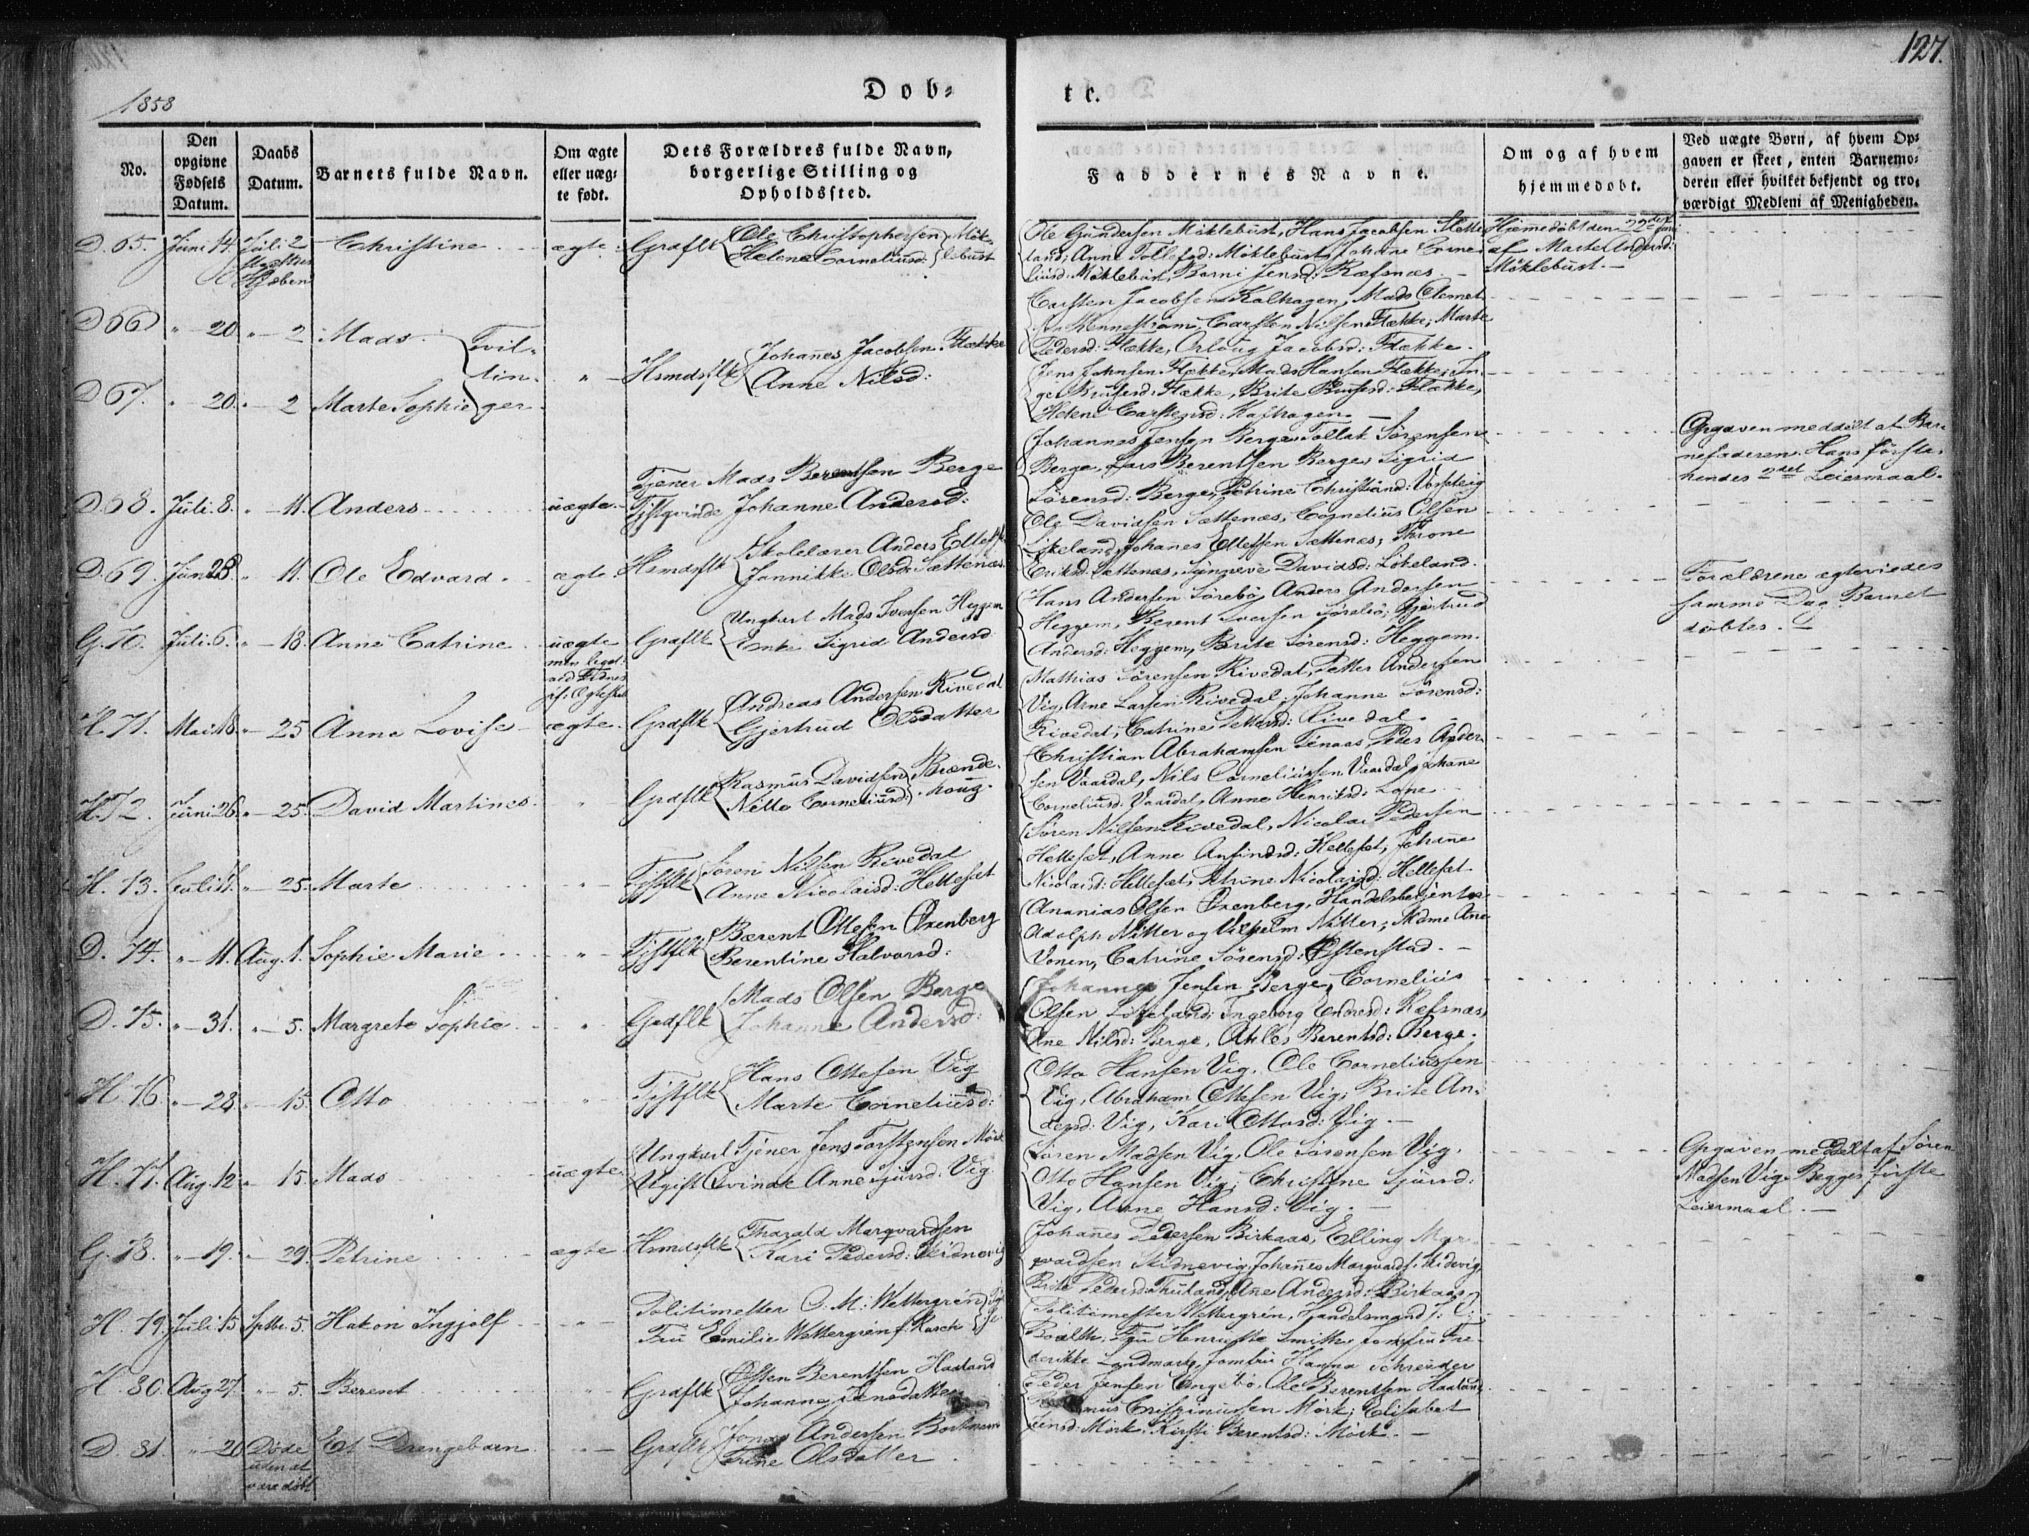 1858
Døb-
te.
127.
No.
Den opgivne Fødsels Datum.
Daabs Datum.
Barnets fulde Navn.
Om ægte eller uægte født.
Dets Forældres fulde Navn, borgerlige Stilling og Opholdssted.
Faddernes Navne.
Om og af hvem hjemmedøbt.
Ved uægte Børn, af hvem Opgaven er skeet, enten Barnemoderen eller hvilket bekjendt og troværdigt Medlem af Menigheden.
D. 65. Juni 14. Juli 2 Christine ægte. Grdflk Ole Christophersen Helene Corneliusd: Møklebust
Ole Gundersen Møklebust, Hans Jacobsen
land, Anne Tollefsd: Møklebust, Johane Corne
liusd: Møklebust, Borni Jensd: Ræfsnæs.
Hjemmedøbt den 22de Juni
af Marte
Møklebust.
D 66 " 20. " 2 Mads Tvil-
Carsten Jacobsen Kalhagen, Mads Clemet
Hennestrøm, Carsten Nilsen Flække, Marte
Pedersd: Flække, Jacobsd: Flække.
lin- " Hsmdsflk Johanes Jacobsen Flække Anne Nilsd:
D 67. " 20. " 2 Marte Sophie ger
Jens Johnsen Flække, Mads Hansen Flække, In-
Flække, Brite Flække,
Helene Carstensd: Kalhagen
D. 68. Juli 8. " 11. Anders uægte. Tjener Mads Berentsen Berge Tjstqvinde Johanne Andersd:
Johannes Jensen Berge, Tollak Sørensen
Berge, Lars Berentsen Berge, Sigrid
Sørensd: Berge, Petrine Christiand:
Opgaven meddelt af Bar-
nefaderen. Hans første,
hendes 2det Leiermaal.
D. 69. Juni 28. " 11. Ole Edvard ægte. Hsmdsflk Skolelærer Anders Jannikke Olsd: Sættenæs
Ole Davidsen Sættenæs, Cornelius Olsen
Løkeland, Johanes Ellefsen Sættenæs, Throne
Eriksd: Sættenæs, Synneve Davidsd: Løkeland.
G. 70. Juli 6. " 18. Anne Catrine uægte Grdflk Ungkarl Mads Iversen Heggem Enke Sigrid Andersd
Hans Andersen Sørebø, Anders Andersen
Heggem, Berent Iversen Sørebø, Gjertrud
Andersd: Heggem, Brite Sørensd: Heggem.
Forældrene ægteviedes
samme Dag Barnet
døbtes.
H. 71. Mai 18. " 25 Anna Lovise ægte. Grdflk Andreas Andersen Rivedal Gjertrud Olsdatter
Mathias Sørensen Rivedal, Petter Andersen
Vig, Arne Larsen Rivedal, Johanne Sørensd:
Rivedal, Catrine Pettersd: Rivedal.
H. 72. Juni 26. " 25. David Martines " Grdflk Rasmus Davidsen Nille Corneliusd Brænde-
Christian Abrahamsen Tenaas, Peder Ander-
sen Vaardal, Nils Corneliussen Vaardal, Johane
Corneliusd: Vaardal, Anne Henriksd:
H. 73. Juli " 25. Marte " Tjstflk Søren Nilsen Rivedal Anne Nicolaisd: Hellesæt
Søren Nilsen Rivedal, Nicolai Pedersen
Hellesæt, Anne Anfindsd: Hellesæt, Johanne
Nicolaisd: Hellesæt, Petrine Nicolaisd: Hellesæt
D. 74. " 11. Aug. 1. Sophie Marie " Tjstflk Bærent Ottesen Oxenberg Berentine Halvorsd:
Ananias Olsen Oxenberg, Handelsbetjenter
Adolph Nitter og Vilhelm Nitter, Mdme Ane
Vonen, Catrine Sørensd: Østenstad.
D. 75. " 31. " 5. Margrete Sophie " Grdflk Mads Olsen Berge Johanne Andersd:
Johannes Jensen Berge, Cornelius
Olsen Løkeland, Ingeborg Endresd: Ræfsnæs,
Ane Nilsd: Berge, Ahle Berentsd: Berge.
H. 76. " 28. " 15. Otto " Tjstflk Hans Ottesen Vig Marte Corneliusd:
Otto Hansen Vig, Ole Corneliussen
Vig, Abraham Ottesen Vig, Brite An-
dersd: Vig, Kari Ottosd: Vig.
H. 77. Aug. 12 " 15. Mads uægte. Ungkarl Tjener Jens Torstensen Mørk Ugift Qvinde Anne Sjursd: Vig
Søren Madsen Vig, Ole Sørensen Vig,
Otto Hansen Vig, Christine Sjursd:
Vig, Anne Hansd: Vig.
Opgaven meddelt af Søren
Madsen Vig. Begges første
Leiermaal.
G. 78. " 19. " 29. Petrine ægte Hsmdsflk Tharald Marqvardsen Kari Pedersd: Skidnevig
Johanes Pedersen Birkaas, Elling Mar-
qvardsen Skidnevig, Johannes Marqvards. Skidevig,
Brite Pedersd: Thuland, Ane Andersd: Birkaas
H. 79. Juli 15 Sptbr. 5. Hakon Ingjolf " Politimester C. M. Wettergrén Fru Emilie Wettergrén f. Rasch
Politimester Wettergrén, Handelsmand
Fru Henriette Smith, Jomfru Fre-
derikke Landmark, Jomfru Hanna Schreuder
H. 80. Aug 27. " 5. Berent " Grdflk Østen Berentsen Haaland Johanne Jensdatter
Peder Jensen Engebø, Ole Berentsen Haaland
Crispinussen Mørk, Elisabet
Jensd: Mørk, Kirsti Berentsd: Mørk.
D. 81. " 20 Døde uden at være døbt Et Drengebarn " Grdflk Jonas Andersen Olsdatter